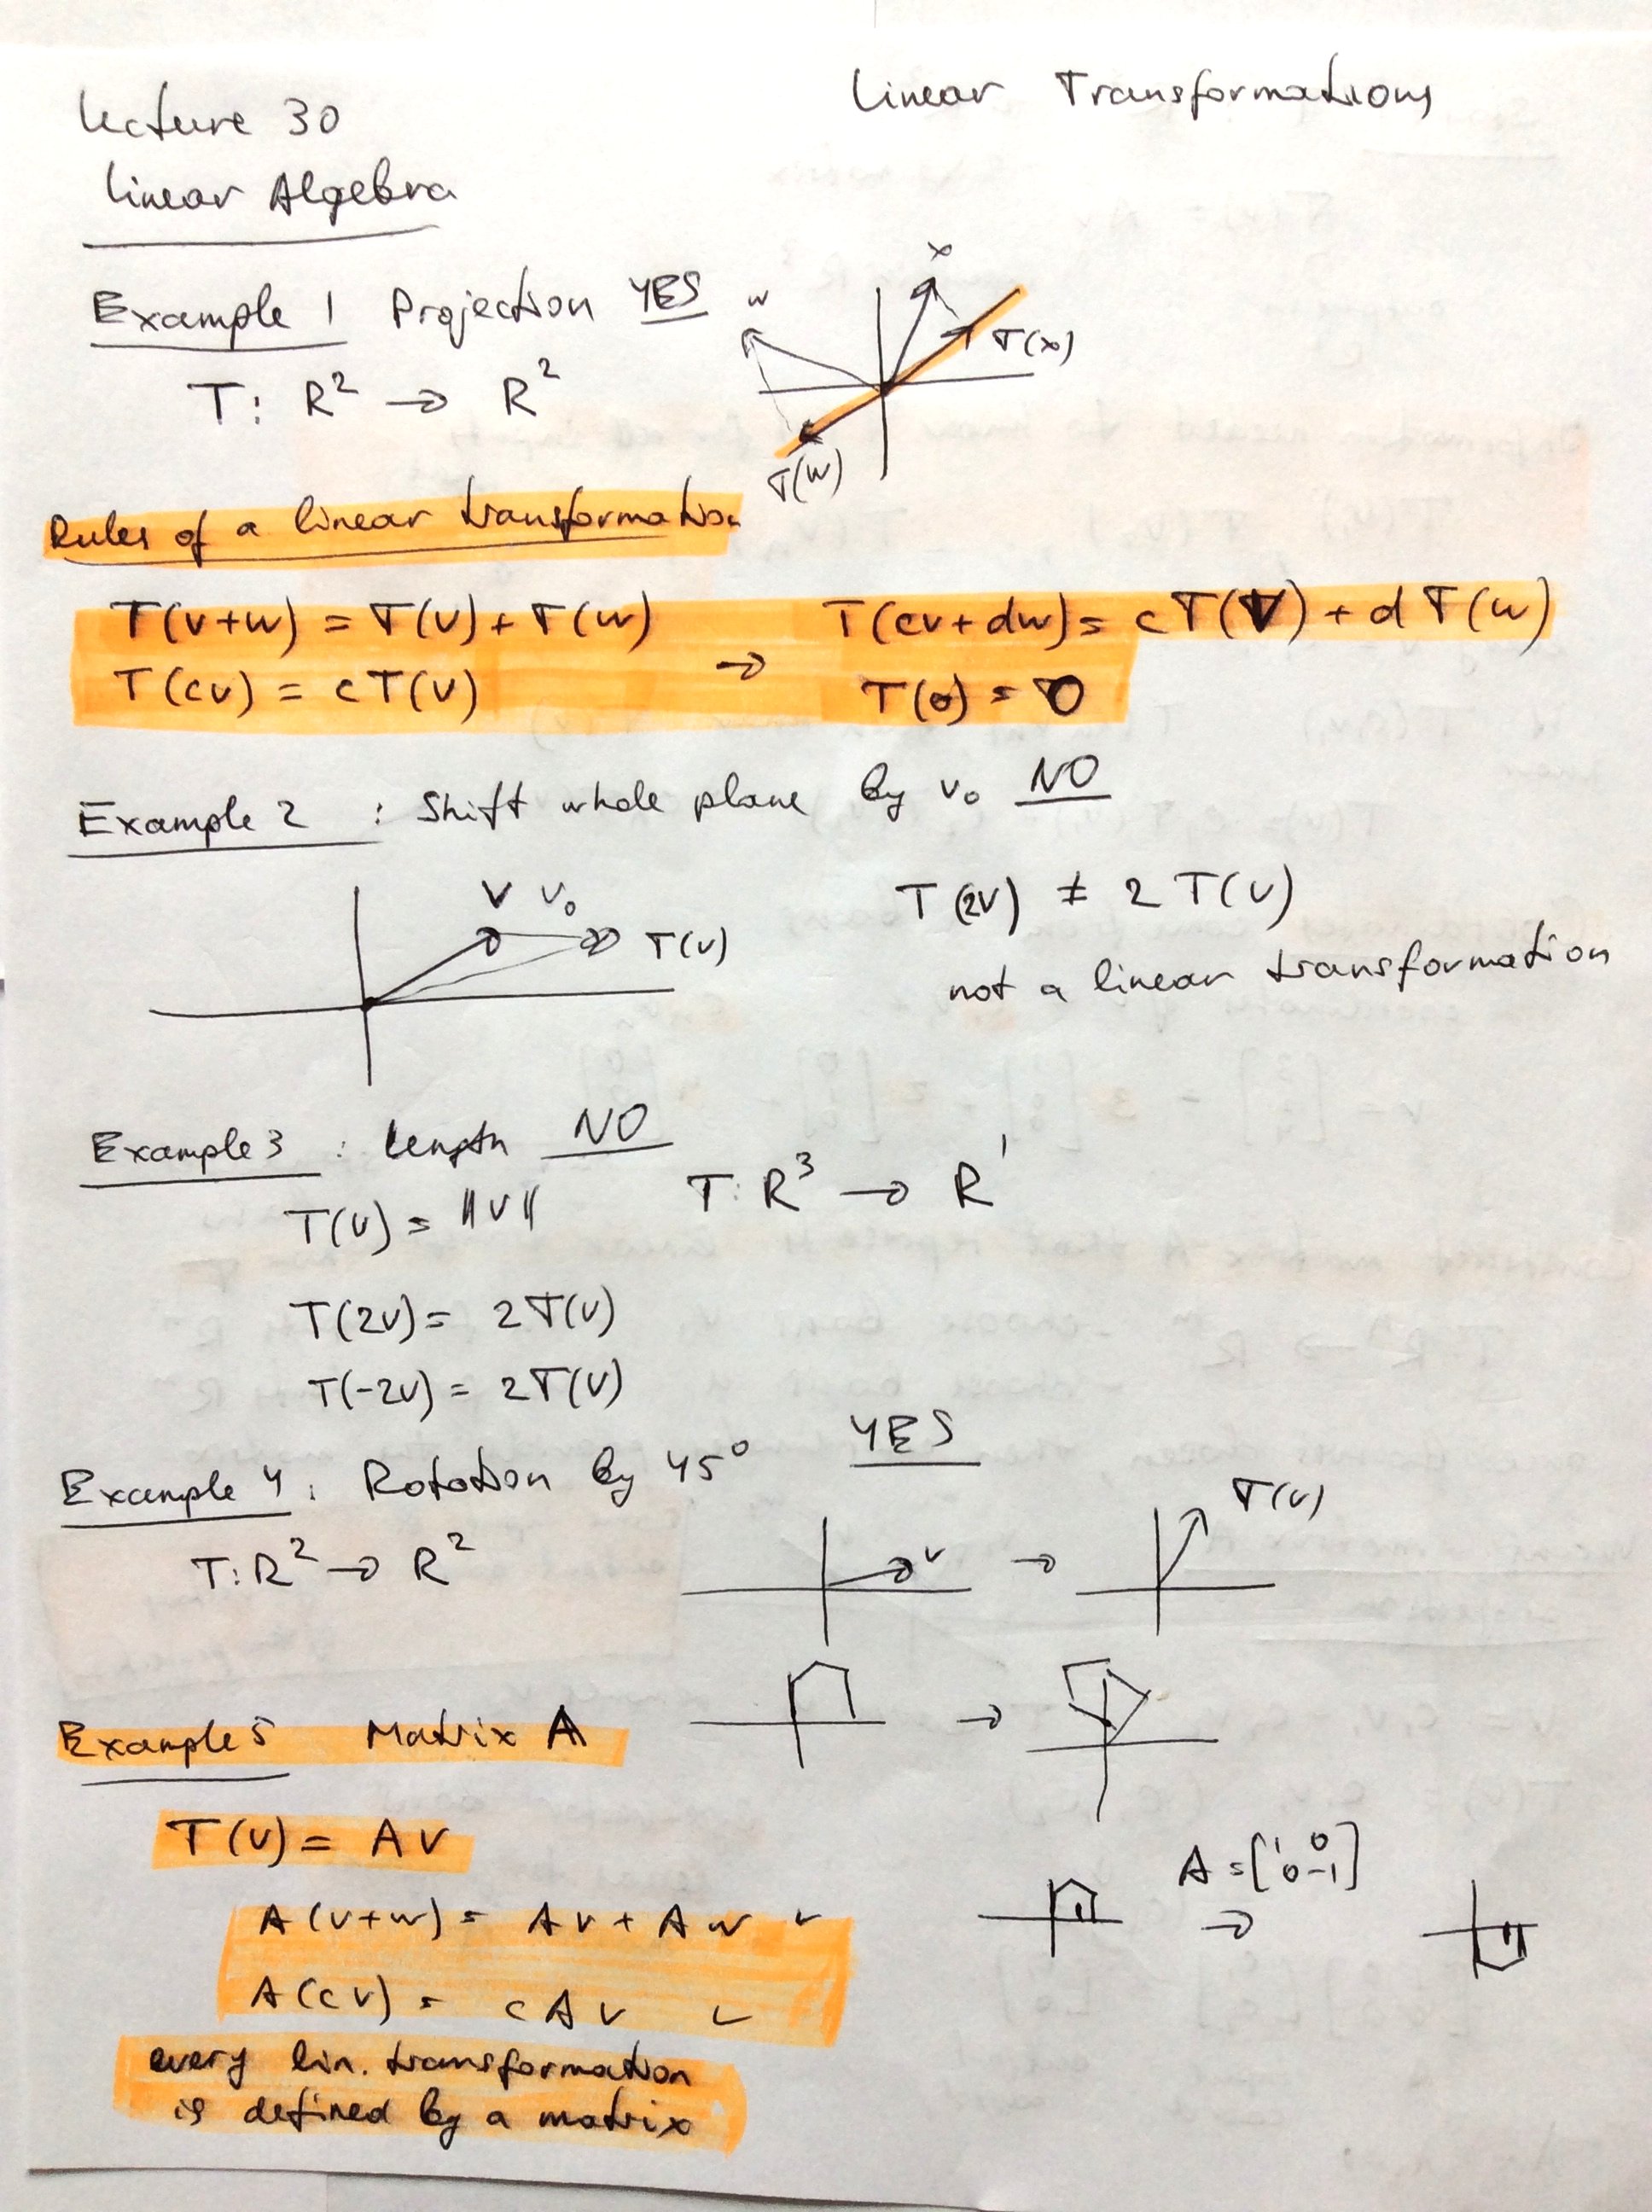 Lecture 30
Linear Transformations
Linear Algebra
Example 1 Projection YES
T: R² → R²
w
x
T(x)
T(w)
Rules of a linear transformation
T(v+w) = T(v) + T(w)
T(cv) = cT(v)
→
T(cv+dw) = cT(v) + dT(w)
T(0) = 0
Example 2 : Shift whole plane by v₀ NO
v v₀
T(v)
T(2v) ≠ 2T(v)
not a linear transformation
Example 3 : length NO
T(v) = ||v|| T: R³ → R¹
T(2v) = 2T(v)
T(-2v) = 2T(v)
Example 4 : Rotation by 45° YES
T: R² → R²
v → T(v)
→
Example 5 Matrix A
T(v) = Av
A = [1 0
0 -1]
→
A(v+w) = Av + Aw ✓
A(cv) = cAv ✓
every lin. transformation
is defined by a matrix